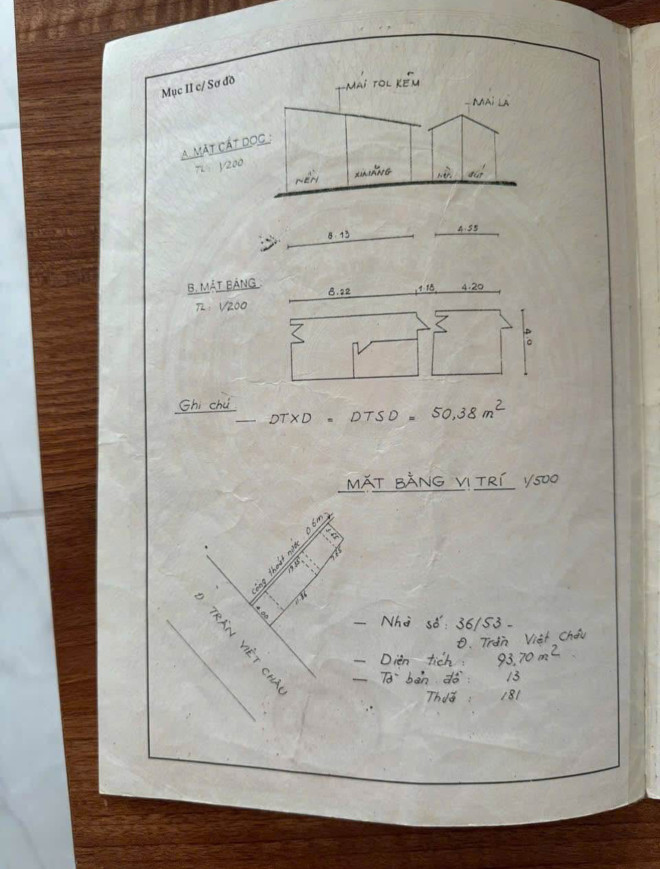 Mục II c/ Sơ đồ
MÁI TOL KẼM
MÁI LÁ
A. MẶT CẮT DỌC:
TL: 1/200
NỀN XIMĂNG
8.13
4.55
B. MẶT BẰNG
TL: 1/200
8.22 1.18 4.20
4.0
Ghi chú
— DTXD = DTSD = 50,38 m²
MẶT BẰNG VỊ TRÍ 1/500
Cống thoát nước 0.6m
4.00
Đ. TRẦN VIỆT CHÂU
— Nhà số: 36/53 -
Đ. Trần Việt Châu
— Diện tích: 93,70 m²
— Tờ bản đồ: 13
Thửa: 181